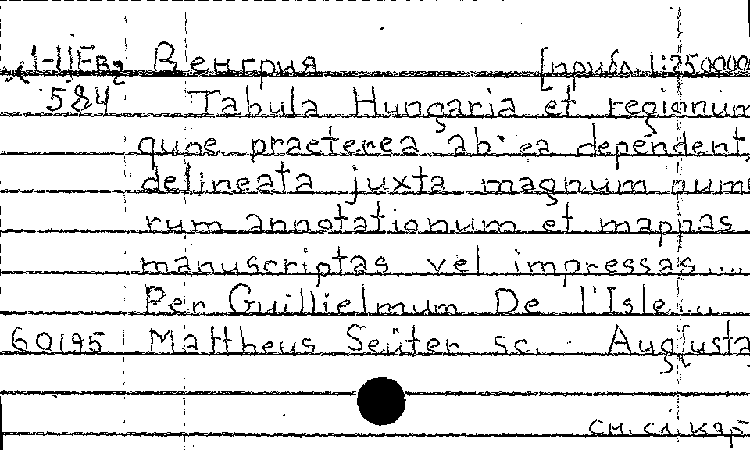 Венгрия [прибл. 1:250000
584 Tabula Hungaria et regionum
quae praeterea ab ea dependent,
delineata juxta magnum nume
rum annotationum et mappas
manuscriptas vel impressas...
Per Guillielmum De l'Isle...
60195 Mattheus Seüter sc. Augusta
см. сл. кар